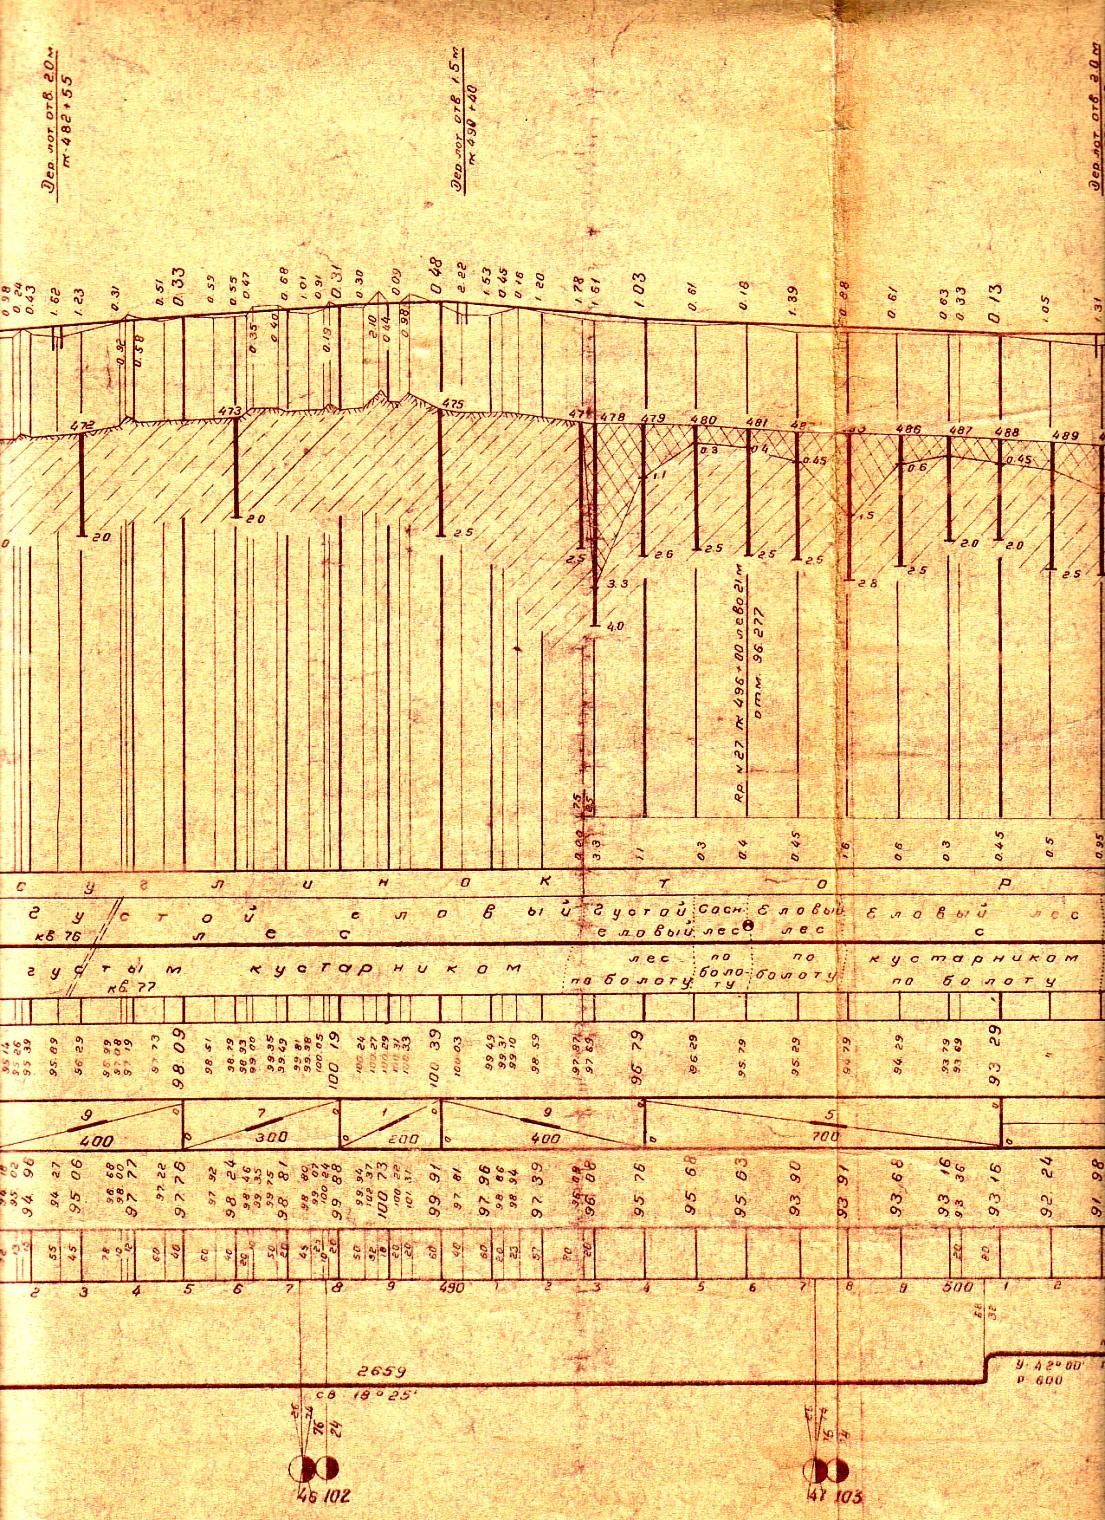 Дер лот отв. 2.0 м
пк 482 + 55
Дер лот отв. 1.5 м
пк 490 + 40
Дер лот отв. 2.0 м
0.98 0.24 0.43 1.62 1.23 0.31 0.51 0.33 0.59 0.55 0.47 0.68 1.01 0.91 0.31 0.30 0.09 0.48 2.22 1.53 0.45 0.16 1.20 1.78 1.61 1.03 0.61 0.16 1.39 0.88 0.61 0.63 0.33 0.13 1.05 1.31
0.92 0.58 0.35 0.40 0.19 2.10 0.44 0.98
472 473 475 478 479 480 481 486 487 488 489
1.1 0.3 0.4 0.45 1.5 0.6 0.45
2.0 2.0 2.5 2.5 3.3 4.0 2.6 2.5 2.5 2.5 2.8 2.5 2.0 2.0 2.5
Rp N 27 пк 496 + 00 лево 21 м
отм. 96.277
75
25
0.20 3.3 1.1 0.3 0.4 0.45 1.6 0.6 0.3 0.45 0.5 0.95
с у г л и н о к т о р
г у с т о й е л о в ы й густой сосн. Еловый Еловый лес
кв 76 л е с еловый лес лес с
г у с т ы м к у с т а р н и к о м лес по по кустарником
кв. 77 по болоту боло- болоту по болоту
ту
95.14 95.26 95.39 95.89 96.29 96.99 97.08 97.19 97.73 98.09 98.51 98.79 98.93 99.00 99.35 99.49 99.81 99.88 100.05 100.19 100.24 100.27 100.29 100.31 100.33 100.39 100.03 99.49 99.31 99.10 98.59 97.87 97.69 96.79 96.29 95.79 95.29 94.79 94.29 93.79 93.69 93.29
9 7 1 9 5
400 300 200 400 700
95.02 94.96 94.27 95.06 98.68 98.00 97.77 97.22 97.76 97.92 98.24 98.46 99.35 99.75 98.81 98.80 99.07 100.24 99.88 99.94 102.37 100.73 100.22 101.31 99.91 97.81 97.96 98.86 98.94 97.39 96.09 96.08 95.76 95.68 95.63 93.90 93.91 93.68 93.16 93.36 93.16 92.24 91.98
55 45 78 10 12 60 40 60 40 20 50 20 45 20 50 32 18 20 20 60 40 60 20 23 57 80 20 20 80
2 3 4 5 6 7 8 9 490 1 2 3 4 5 6 7 8 9 500 1 2
68 32
2659
св 18°25'
У 42°00'
Р 600
26 74 76 24
26 74 76 24
46 102
47 103